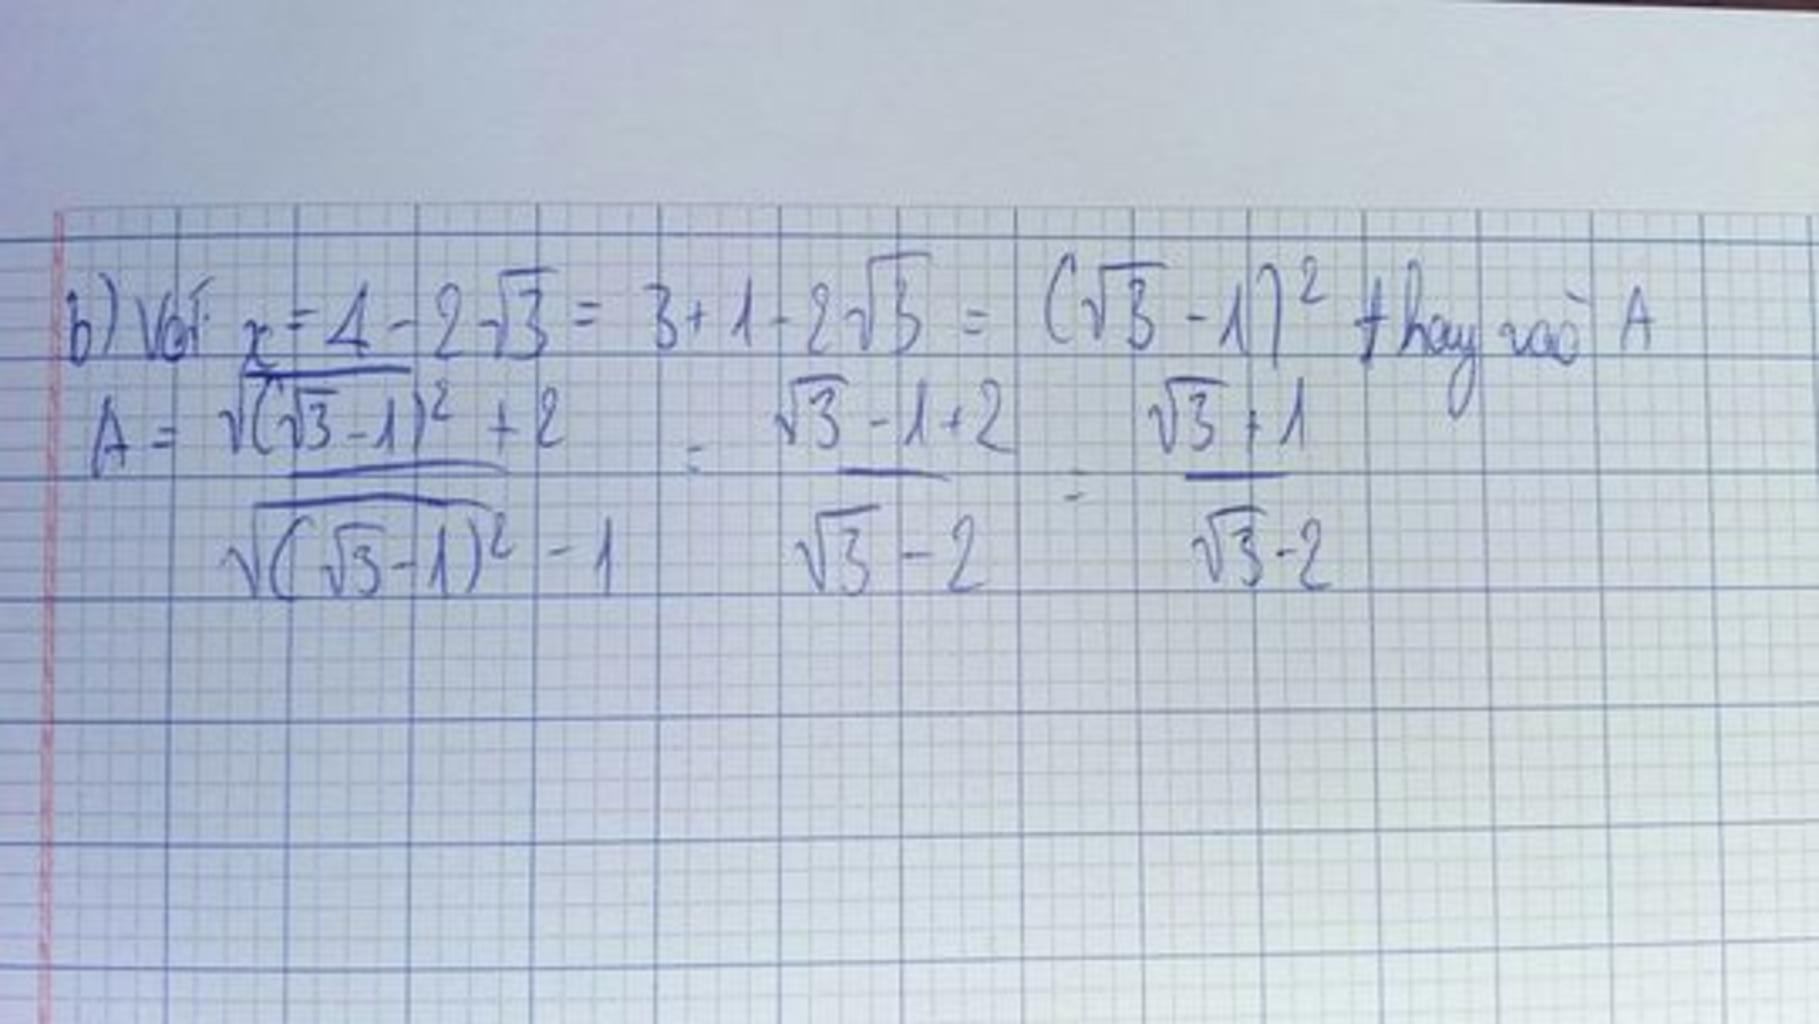 b) Với x = 4 - 2√3 = 3 + 1 - 2√3 = (√3 - 1)² thay vào A
A = (√((√3 - 1)²) + 2) / (√((√3 - 1)²) - 1) = (√3 - 1 + 2) / (√3 - 2) = (√3 + 1) / (√3 - 2)